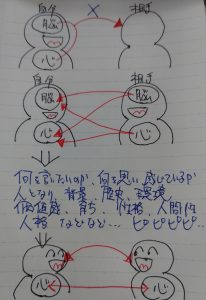 自分 × 相手
脳
心
自分 相手
脳 脳
心 心
何を言いたいのか、何を思い感じているか
人となり 背景 歴史 環境
価値感、育ち、性格、人間性
人格 などなど… ピピピピピ…
心 心